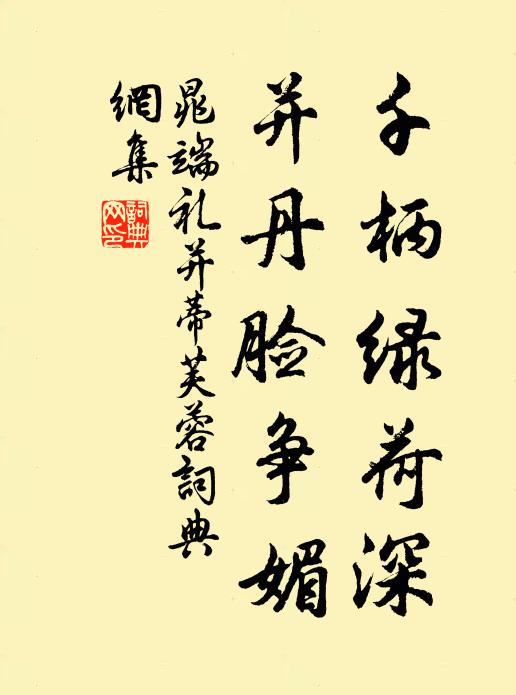 千柄绿荷深
并丹脸争媚
晁端礼并蒂芙蓉詞典
網集
詞典網印